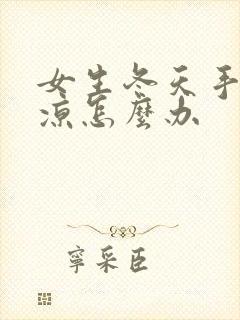 女生冬天手
凉怎麼办
寧采臣